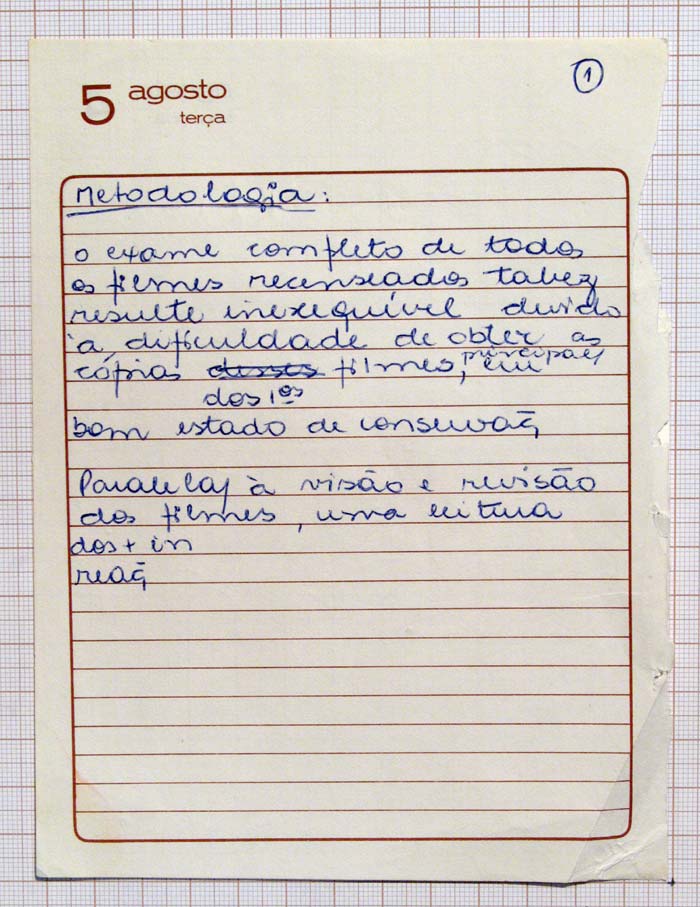 5 agosto
terça
1
Metodologia:
o exame completo de todos
os filmes recenseados talvez
resulte inexequível devido
à dificuldade de obter as
cópias desses filmes, principaes em
dos 1os
bom estado de conservaç
Paralelaj à visão e revisão
dos filmes, uma leitura
dos + in
reaç